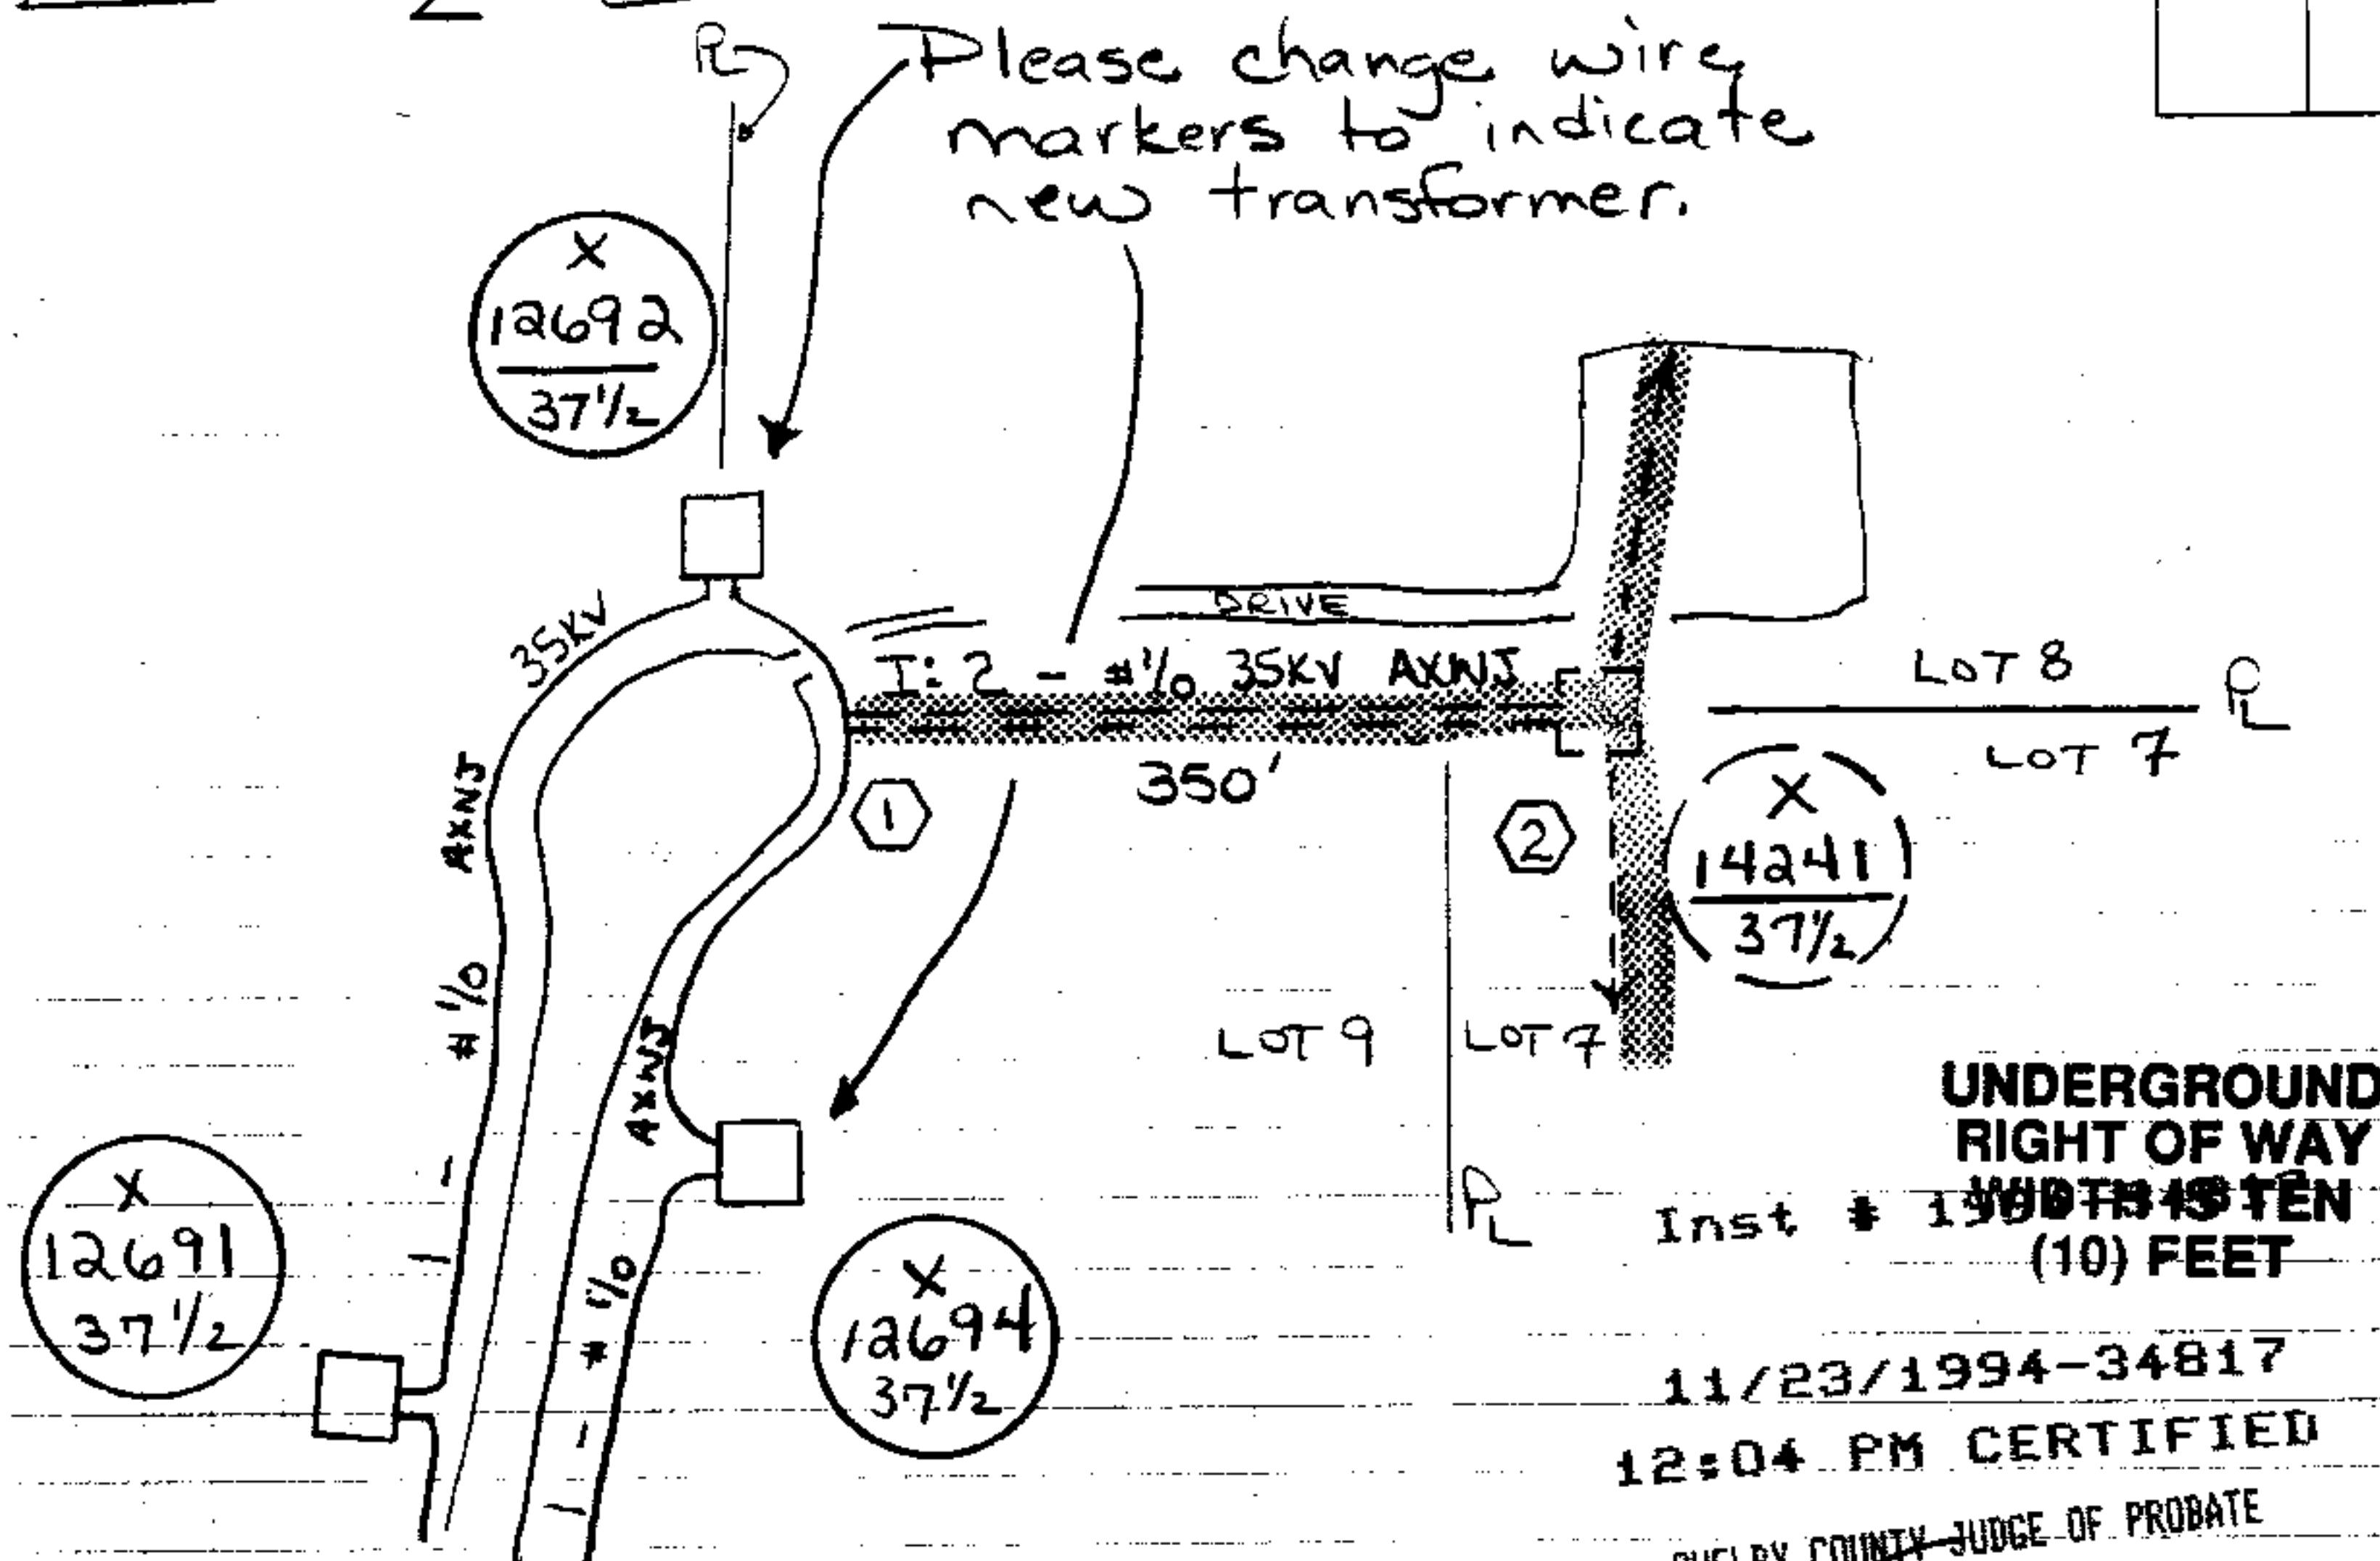 PL
Please change wire
markers to indicate
new transformer.
X
12692
37 1/2
35KV
DRIVE
I: 2 - #1/0 35KV AXNJ
LOT 8
PL
LOT 7
350'
AXNJ
1
2
X
14241
37 1/2
#1/0
LOT 9
LOT 7
AXNJ
UNDERGROUND
RIGHT OF WAY
WIDTH IS TEN
Inst #
(10) FEET
PL
X
12691
37 1/2
#1/0
X
12694
37 1/2
11/23/1994-34817
12:04 PM CERTIFIED
SHELBY COUNTY JUDGE OF PROBATE